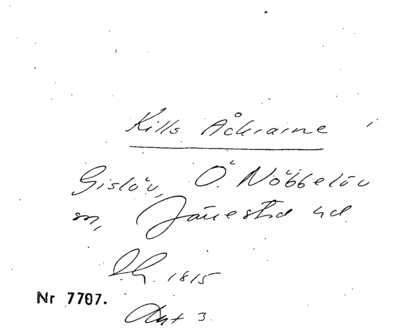 Kills Åkrarne i
Gislöv, Ö. Nöbbelöv
sn, Järrestad hd
1815
Nr 7707.
Akt 3